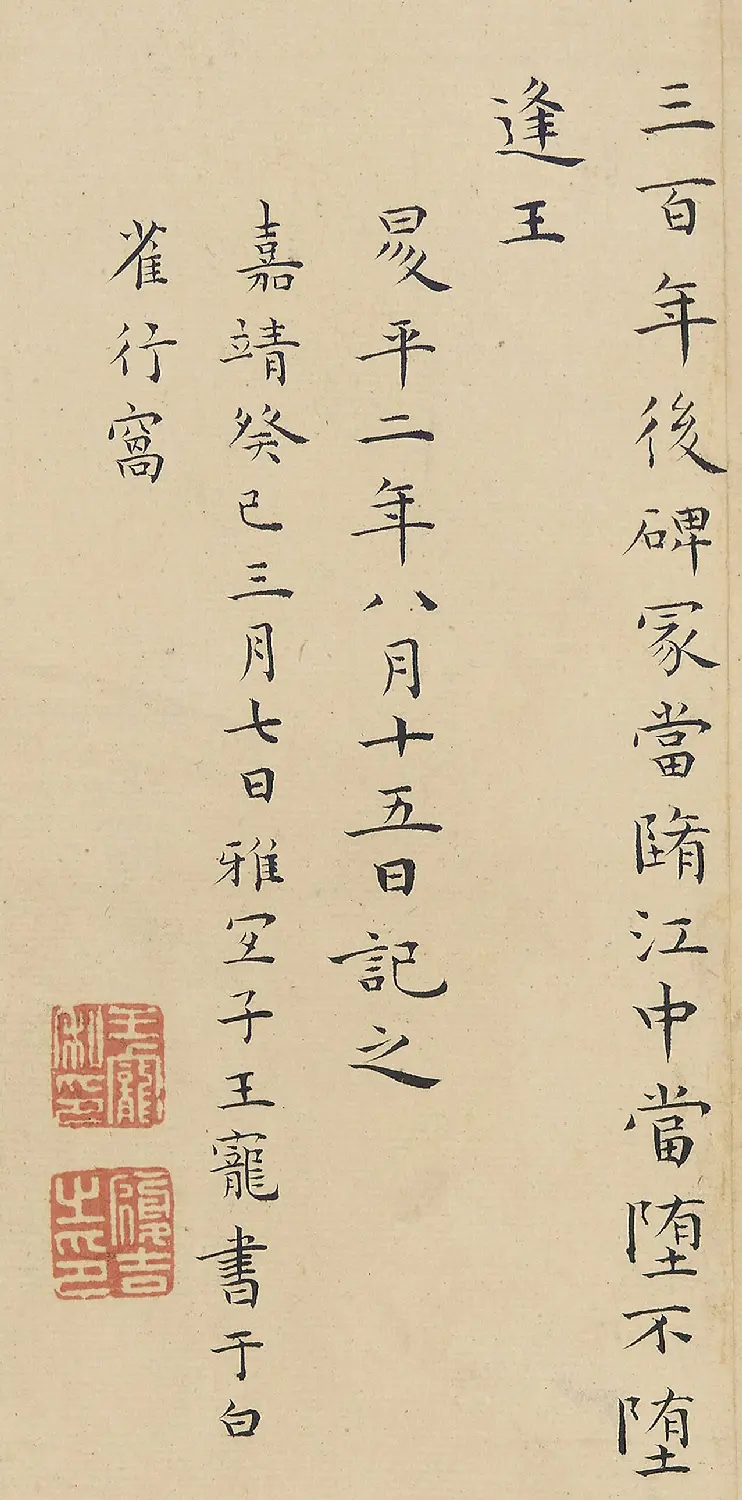 三百年後碑冢當隋江中當堕不堕
逢王
昇平二年八月十五日記之
嘉靖癸巳三月七日雅宜子王寵書于白
雀行窩
王寵私印
履吉之印